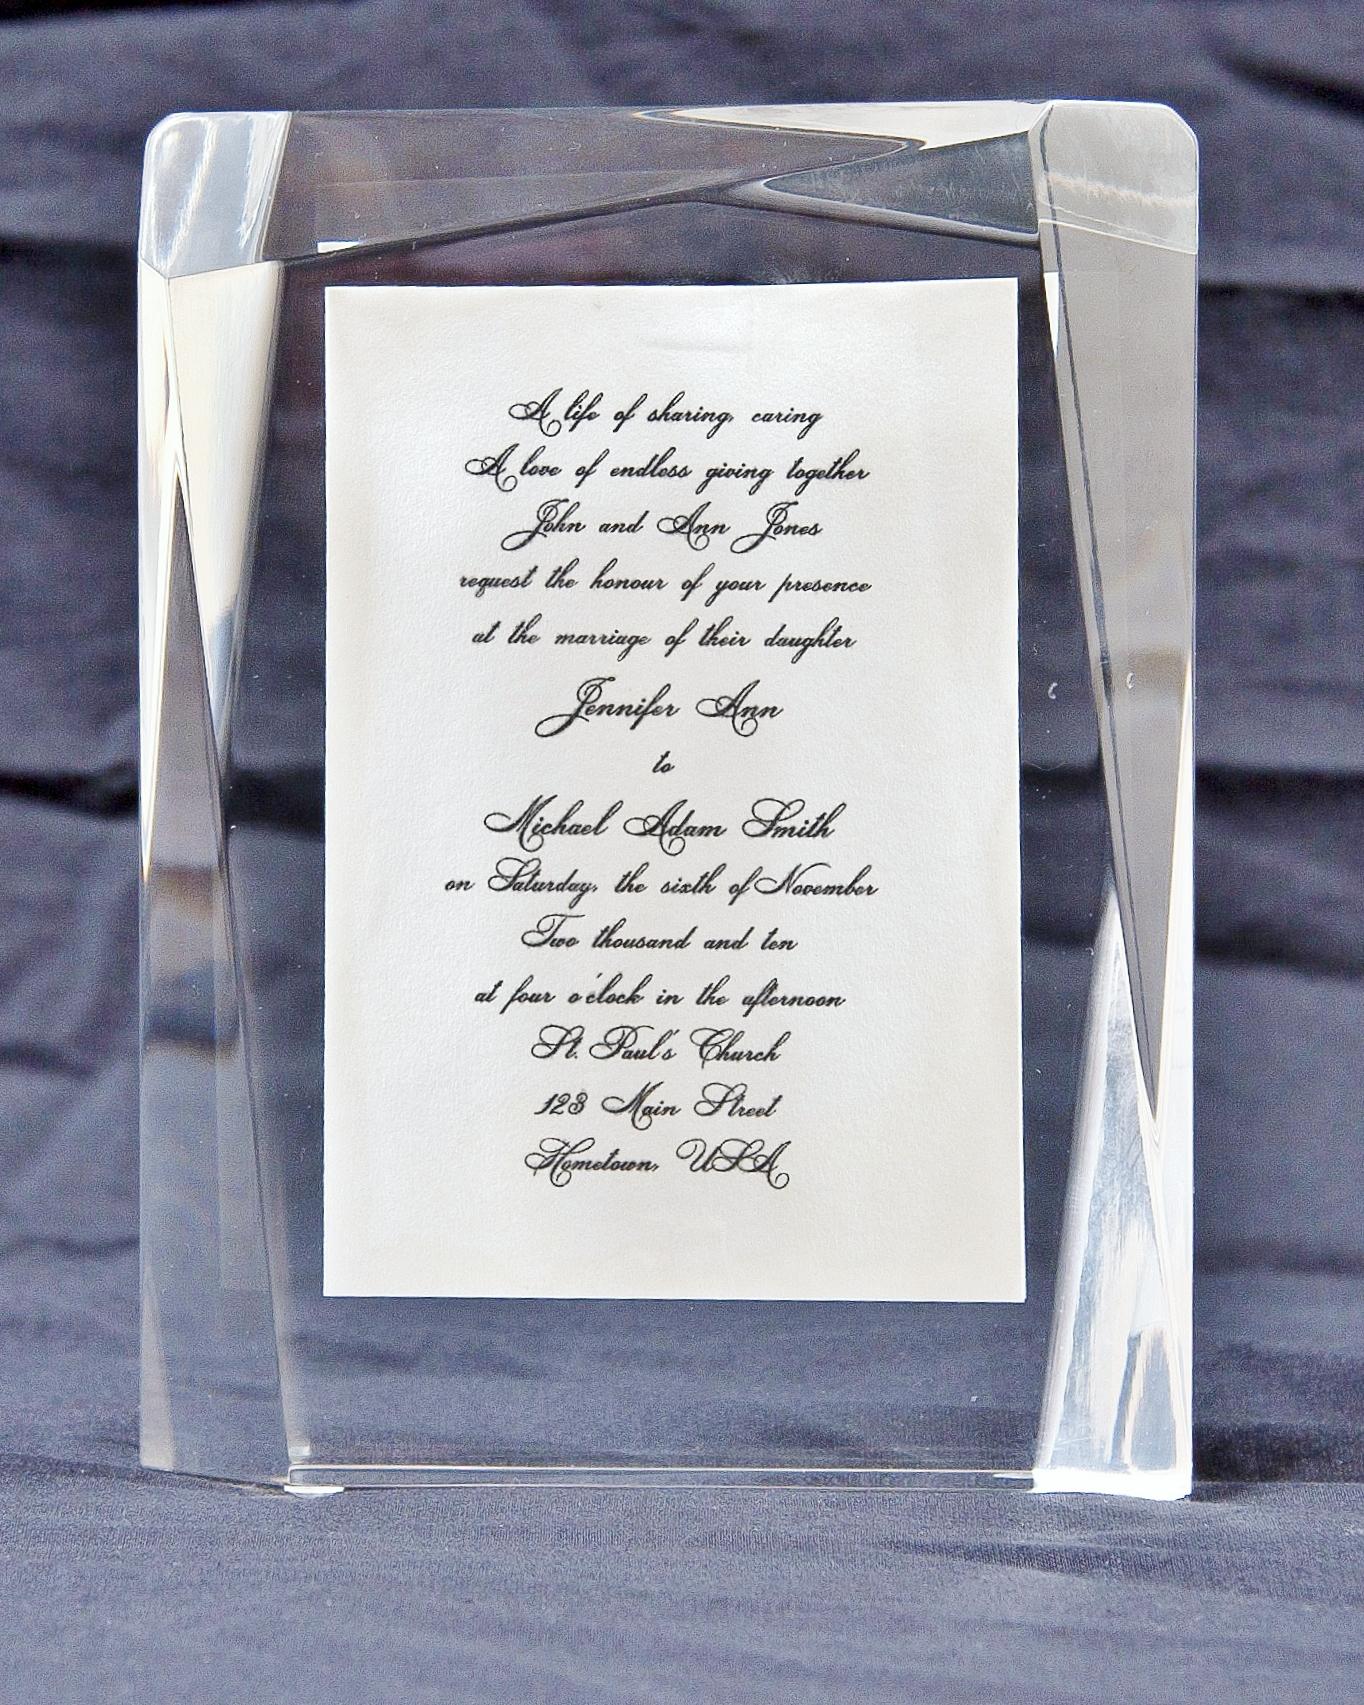 A life of sharing, caring
A love of endless giving together
John and Ann Jones
request the honour of your presence
at the marriage of their daughter
Jennifer Ann
to
Michael Adam Smith
on Saturday, the sixth of November
Two thousand and ten
at four o'clock in the afternoon
St. Paul's Church
123 Main Street
Hometown, USA